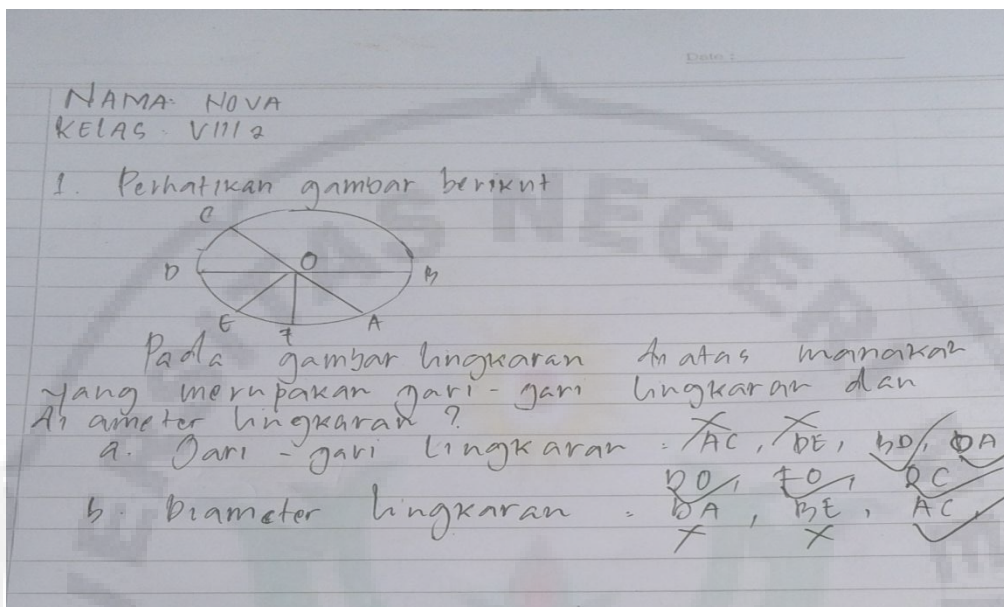 Date:
NAMA: NOVA
KELAS: VIII 2
1. Perhatikan gambar berikut
C
O
D
B
E
F
A
Pada gambar lingkaran di atas manakah
yang merupakan jari-jari lingkaran dan
diameter lingkaran?
a. Jari-jari Lingkaran = AC, BE, BD, OA
DO, FO, OC
b. Diameter lingkaran = DA, BE, AC
UNIVERSITAS NEGERI